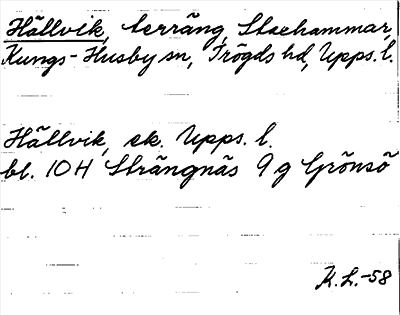 Hällvik, terräng, Stockhammar,
Kungs-Husby sn, Trögds hd, Upps. l.
Hällvik, ek. Upps. l.
bl. 10H Strängnäs 9 g Grönsö
K.L.-58